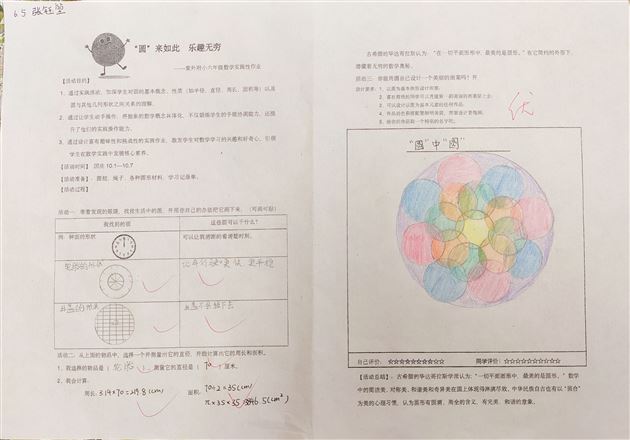 6.5 张钰堃
"圆"来如此 乐趣无穷
——紫外附小六年级数学实践性作业
【活动目的】
1、通过实践活动，加深学生对圆的基本概念、性质（如半径、直径、周长、面积等）以及
圆与其他几何形状之间关系的理解。
2、通过让学生动手操作，将抽象的数学概念具体化，不仅锻炼学生的手眼协调能力，还提
升了他们的实践操作能力。
3、通过设计富有趣味性和挑战性的实践作业，激发学生对数学学习的兴趣和好奇心，引领
学生在数学实践中发展核心素养。
【活动时间】 国庆 10.1—10.7
【活动准备】：圆规、绳子、各种圆形材料、学习记录单。
【活动过程】
活动一：带着发现的眼睛，找找生活中的圆，并用你自己的办法把它画下来。（可画可贴）
我找到的圆
这些圆可以干什么？
例：钟面的形状
可以让我清晰的看清楚时刻。
轮胎的形状
让车行驶更快，更平稳
井盖的形状
井盖不会掉下去
活动二：从上面的物品中，选择一个并测量出它的直径，并能计算出它的周长和面积。
1、我选择的物品是（轮胎），测量它的直径是（70）厘米。
2、我会计算。
周长：3.14×70=219.8(cm)
面积：70÷2=35(cm)
π×35×35=3846.5(cm²)
古希腊的毕达哥拉斯认为："在一切平面形中，最美的是圆形。"在它简约的外形下，
潜藏着无穷的数学奥秘。
活动三：你能用圆自己设计一个美丽的图案吗？
设计要求：1、以圆为基本曲形设计图案；
3、可以设计以圆为基本元素的任何作品；
4、作品的色彩搭配要鲜明美观，画面设计要饱满；
5、给你的作品取一个特别的名字吧；
优
"圆"中"圆"
自己评价：☆☆☆☆☆☆☆☆☆☆
同学评价：☆☆☆☆☆☆☆☆☆☆
【活动总结】：古希腊的毕达哥拉斯学派认为："一切平面图形中，最美的是圆形。"数学
中的简洁美、对称美、和谐美和奇异美在圆上体现得淋漓尽致。中华民族自古也有以"圆合"
为美的心理习惯，认为圆形有圆满、周全的含义，有完美、和谐的意象。